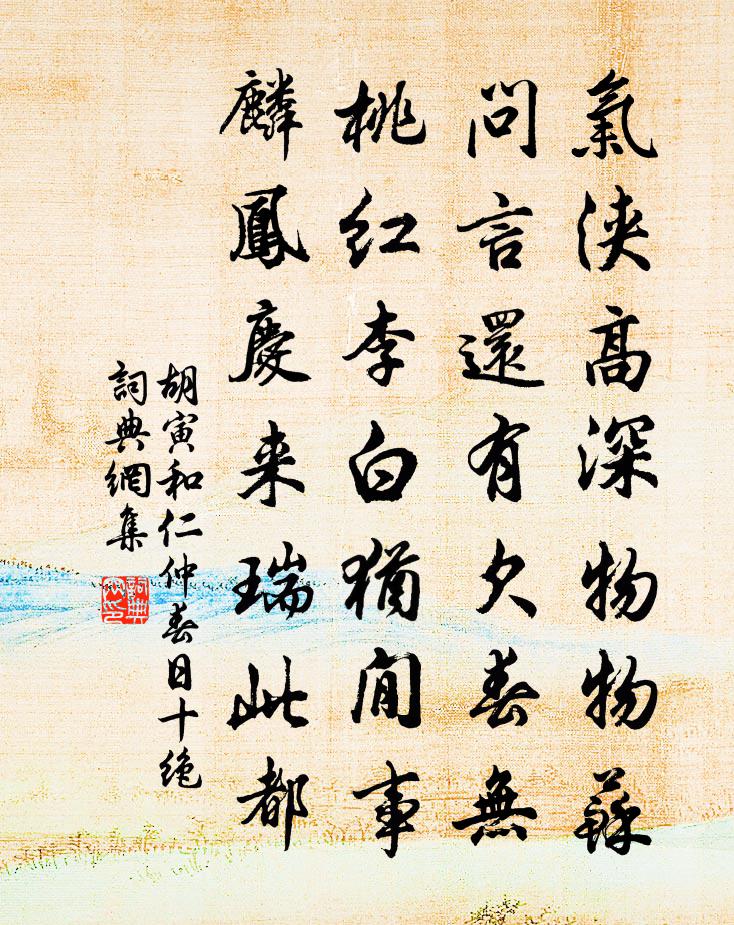 氣浹髙深物物蘇
問言還有欠春無
桃紅李白猶閒事
麟鳳慶来瑞此都
胡寅和仁仲春日十绝
詞典網集